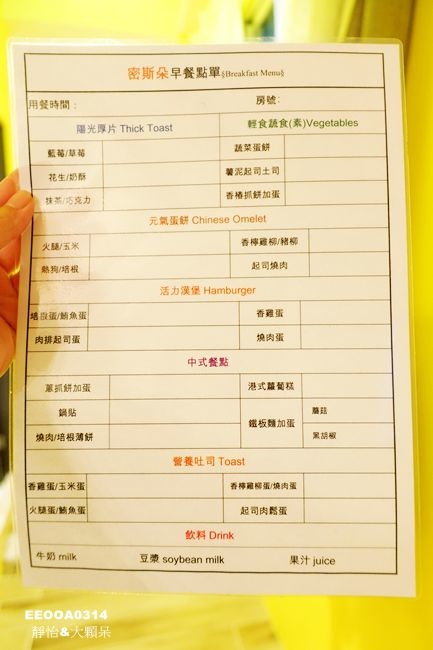 密斯朵早餐點單§Breakfast Menu§
用餐時間： 房號:
陽光厚片 Thick Toast 輕食蔬食(素)Vegetables
藍莓/草莓 蔬菜蛋餅
花生/奶酥 薯泥起司土司
抹茶/巧克力 香椿抓餅加蛋
元氣蛋餅 Chinese Omelet
火腿/玉米 香檸雞柳/豬柳
熱狗/培根 起司燒肉
活力漢堡 Hamburger
培根蛋/鮪魚蛋 香雞蛋
肉排起司蛋 燒肉蛋
中式餐點
蔥抓餅加蛋 港式蘿蔔糕
鍋貼 鐵板麵加蛋 蘑菇
燒肉/培根薄餅 黑胡椒
營養吐司 Toast
香雞蛋/玉米蛋 香檸雞柳蛋/燒肉蛋
火腿蛋/鮪魚蛋 起司肉鬆蛋
飲料 Drink
牛奶 milk 豆漿 soybean milk 果汁 juice
EEOOA0314
靜怡&大顆呆